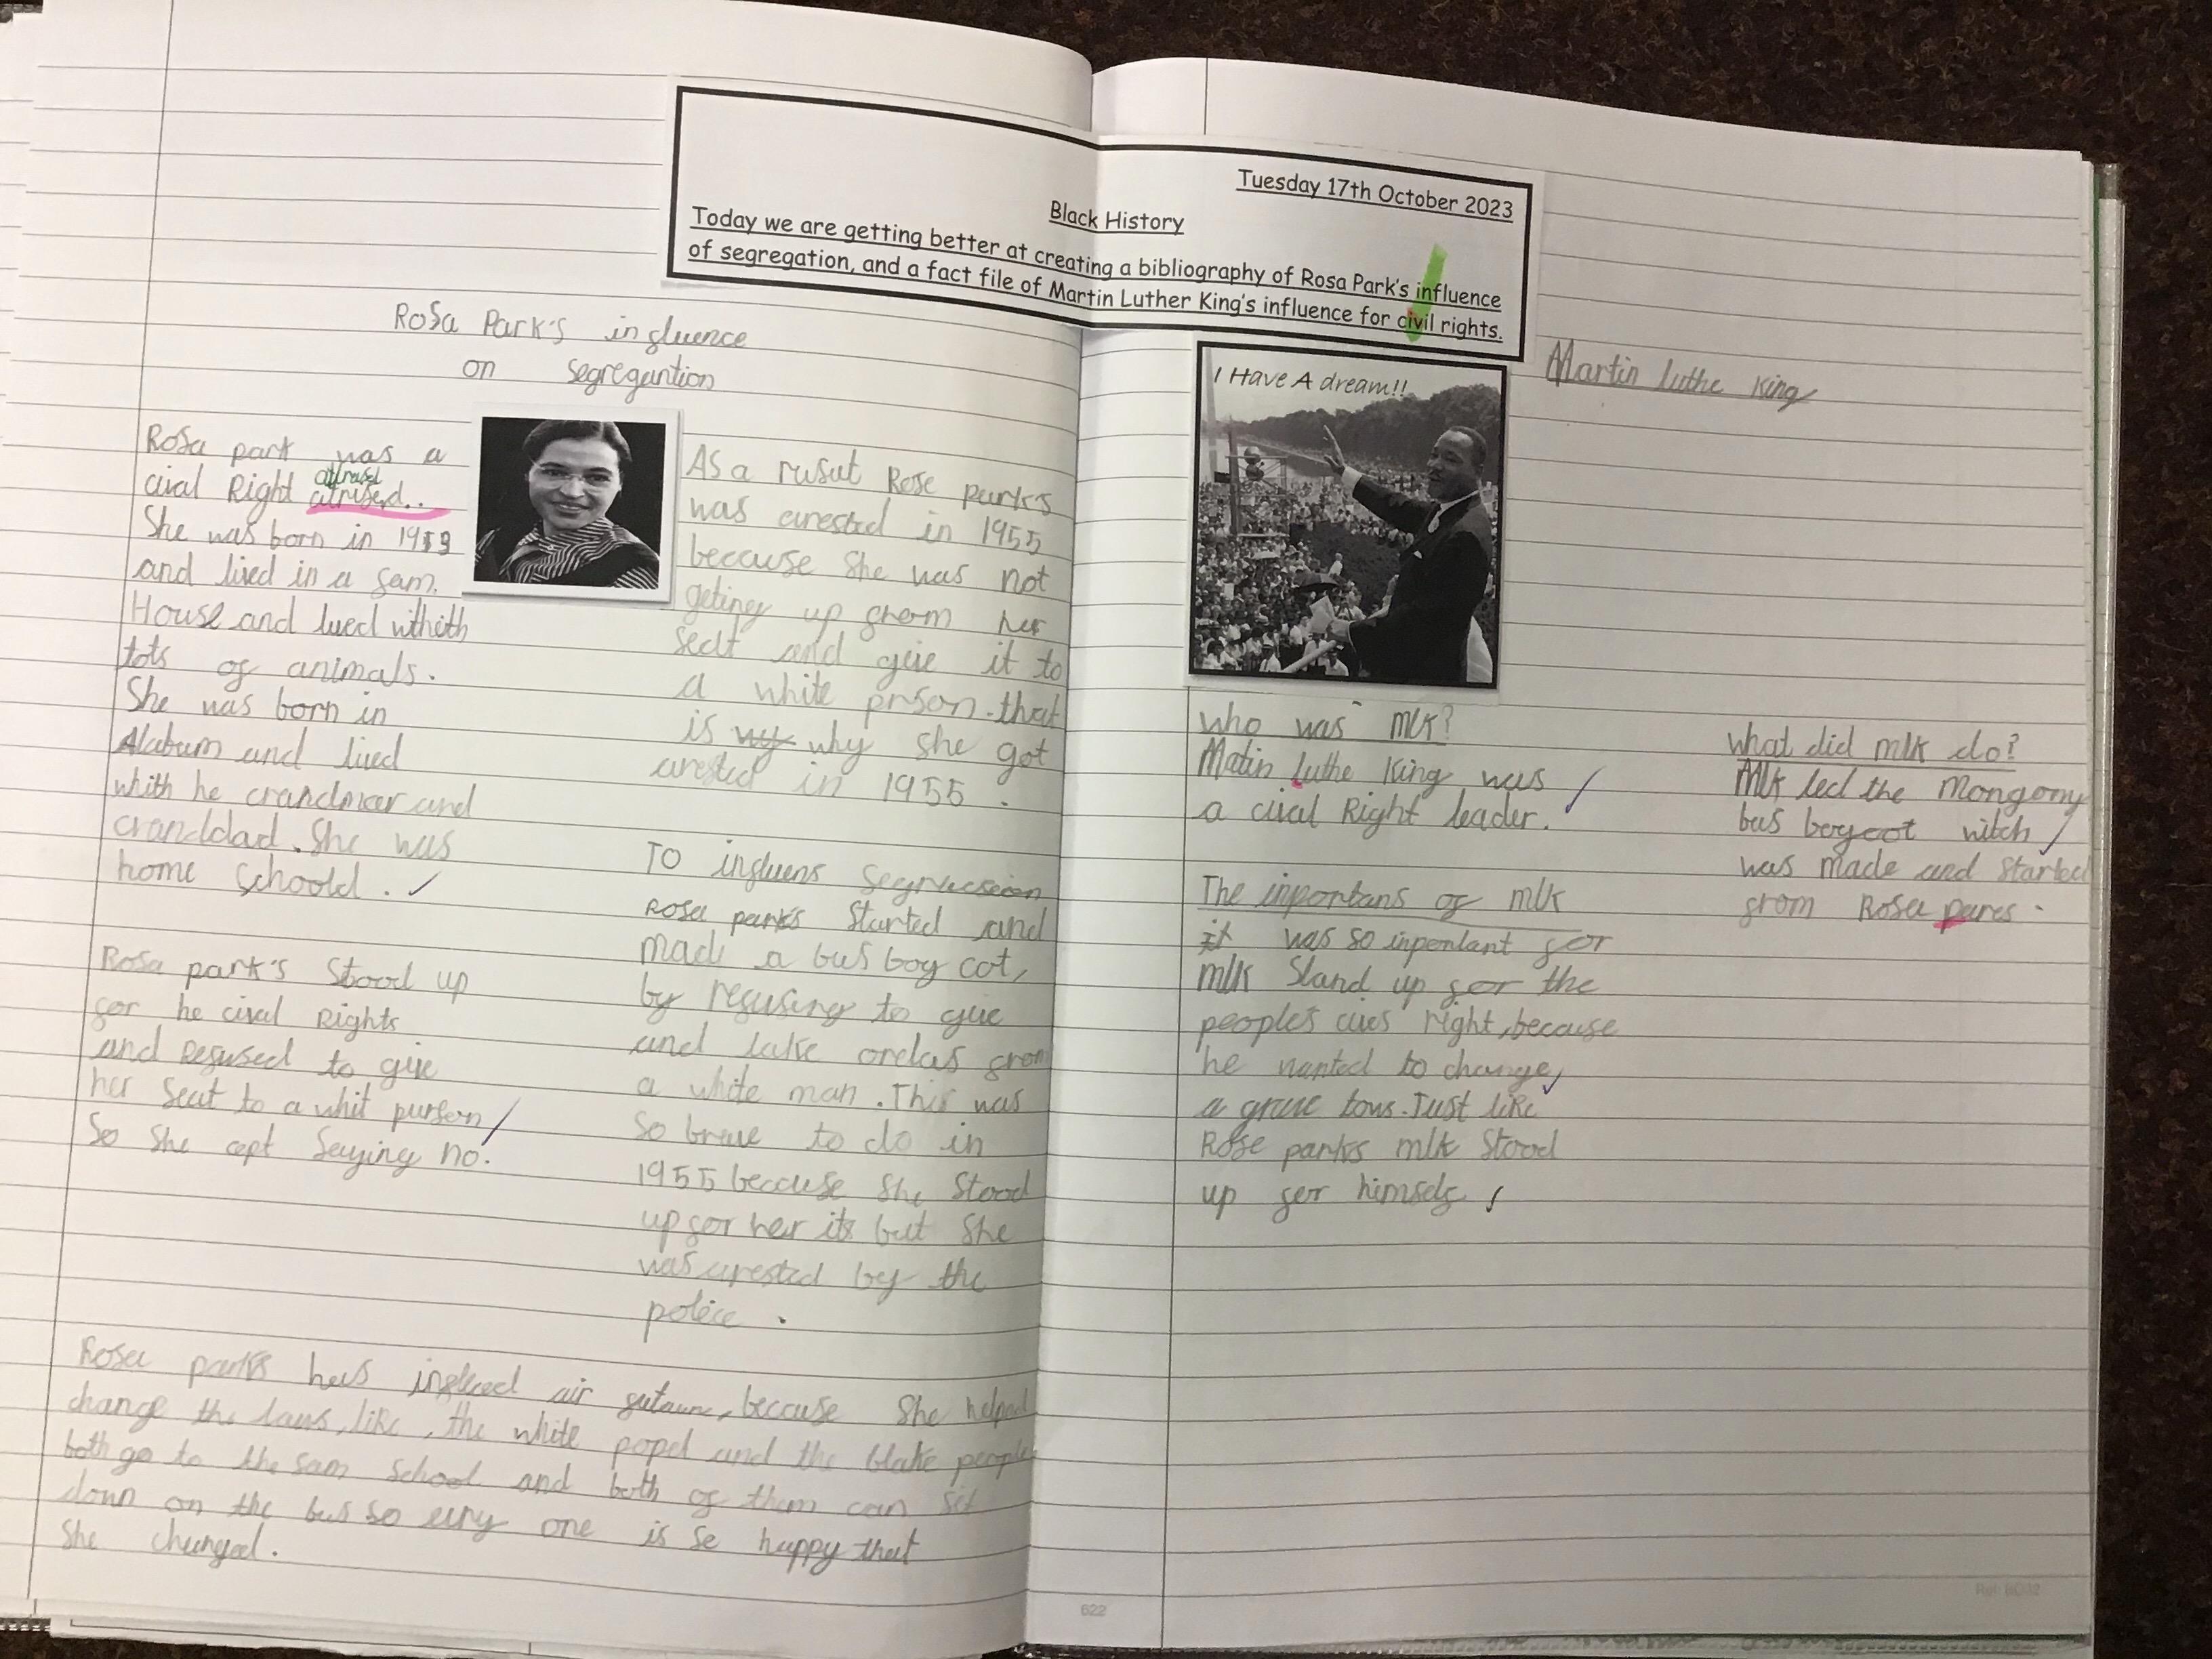 Tuesday 17th October 2023
Black History
Today we are getting better at creating a bibliography of Rosa Park's influence
of segregation, and a fact file of Martin Luther King's influence for civil rights.
Rosa Park's influence
on segregantion
Rosa park was a
cival Right atrused..
She was born in 1913
and lived in a fam.
House and lived whith
lots of animals.
She was born in
Alabum and lived
whith he crandmar and
cranddad. She was
home schoold.
Rosa park's Stood up
for he cival Rights
and Refused to give
her seat to a whit purson
So She cept Saying no.
As a rusut Rose park's
was arested in 1955
because She was not
geting up from her
seat and give it to
a white prson. that
is wy why she got
arested in 1955.
To influens
Rosa parks started and
made a bus boy cot,
by refusing to give
and take ordas from
a white man. This was
So brave to do in
1955 because She Stood
up for her its but She
was arested by the
police.
Rosa parks has infleced air futaure, because She helped
change the laws, like, the white popel and the blake people
both go to the sam School and both of them can sit
down on the bus so evry one is so happy that
She changed.
I Have A dream!!
Martin luthe King
who was mlk?
Matin luthe King was
a cival Right leader.
The inportans of mlk
it was so inportant for
mlk Stand up for the
people's right, because
he wanted to change
a grave tows. Just like
Rose parks mlk Stood
up for himself
what did mlk do?
Mlk led the Mongomy
bus boycot witch
was made and Started
from Rosa pares.
622